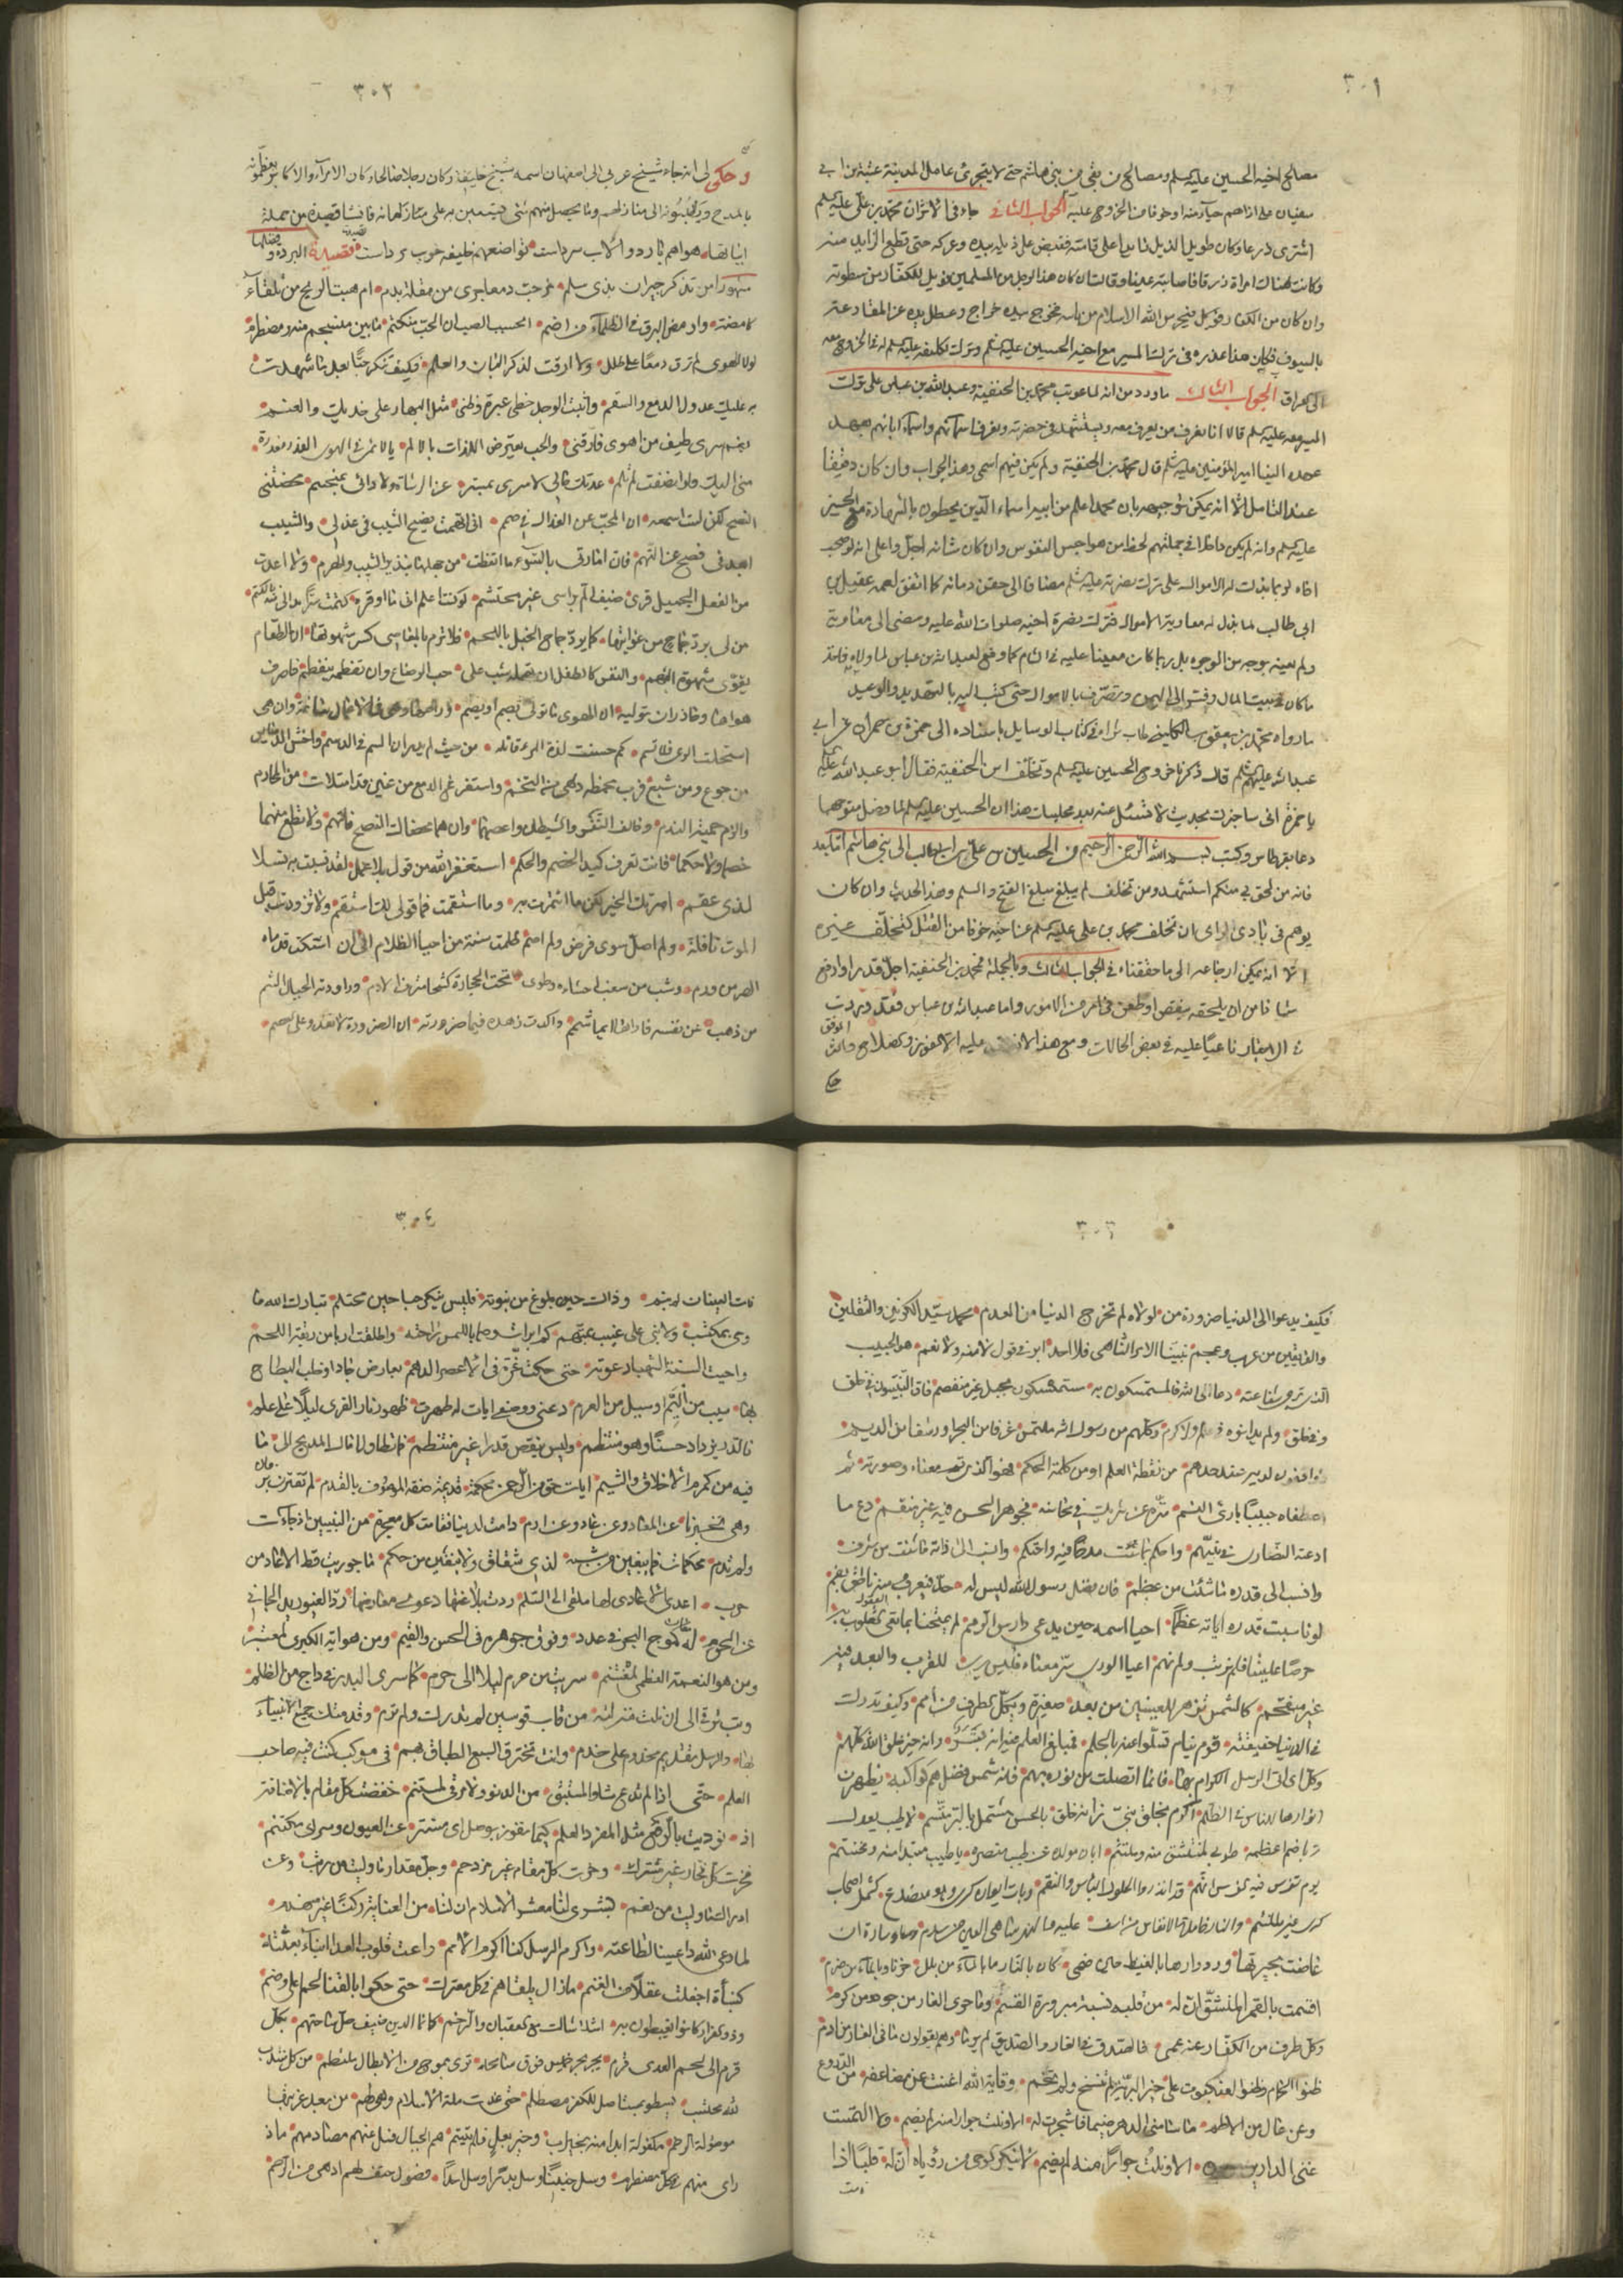 ٣٠١
مصالح اخيه الحسين عليه السلم ومصالح من بقى من بنى هاشم حتى لا يتجرئ عامل المدينة عتبة بن ابي
سفيان على اذاهم حياء منه او خوفا من الخروج عليه الجواب الثاني ما في الاثر ان محمد بن علي عليه السلم
اشترى درعا وكان طويل الذيل على قامته فقبض على ذيله بيده وعركه حتى قطع الزايد منه
وكانت هناك امراة زرقا فاصابته عينا وقالت ان كان هذا الرجل من المسلمين فويل للكفار من سطوته
وان كان من الكفار فويل الله الاسلام من باسه فخرج بيده خراج وعطل يده عن المقارعة
بالسيوف فكان هذا عذره في ترك المسير مع اخيه الحسين عليه السلم وترك تكليفه عليه السلم له في الخروج معه
الى العراق الجواب الثالث ما ورد من انه لما عوتب محمد بن الحنفية وعبد الله بن عباس على ترك
المسير معه عليه السلم قالا انا نعرف من يعرف معه ويستشهد في حضرته ونعرف اسمآئهم واسمآء ابائهم بعهد
عهده الينا امير المؤمنين عليه السلم قال محمد بن الحنفية ولم يكن فيهم اسمى وهذا الجواب وان كان دقيقا
عند التامل الا انه يمكن توجيهه بان محمدا علم من ابيه اسماء الذين يحظون بالشهادة مع الحسين
عليه السلم وانه لم يكن داخلا في جملتهم لحظ من هواجس النفوس وان كان شانه اجل واعلى انه لو صحب
اخاه لو بما بذلت له الاموال على ترك نصرته عليه السلم مضافا الى حقن دمائه كما اتفق لعمه عقيل بن
ابي طالب لما بذل له معاوية الاموال فترك نصرة اخيه صلوات الله عليه ومضى الى معاوية
ولم يعينه بوجه من الوجوه بل ربما كان معينا عليه في الشام كما وقع لعبد الله بن عباس لما ولاه فاخذ
ما كان في بيت المال وتصرف بالاموال حتى كتب اليه بالتهديد والوعيد
ما رواه محمد بن يعقوب الكليني طاب ثراه في كتاب الوسايل باسناده الى حمزة بن حمران عن ابي
عبد الله عليه السلم قال ذكرنا خروج الحسين عليه السلم وتخلف ابن الحنفية فقال ابو عبد الله عليه السلم
يا حمزة اني ساخبرك بحديث لا تسئل عنه بعد مجلسك هذا ان الحسين عليه السلم لما فصل متوجها
دعا بقرطاس وكتب بسم الله الرحمن الرحيم من الحسين بن علي بن ابي طالب الى بني هاشم اما بعد
فانه من لحق بي منكم استشهد ومن تخلف لم يبلغ مبلغ الفتح والسلم وهذا الحديث وان كان
يوهم في بادي الراى ان تخلف محمد بن علي عليه السلم عن اخيه خوفا من القتل كتخلف غيره
الا انه يمكن ارجاعه الى ما حققناه في الجواب الثالث وبالجملة فمحمد بن الحنفية اجل قدرا وارفع
شانا من ان يلحقه بنقص او طعن في امر من الامور واما عبد الله بن عباس فقد وردت
في الاخبار ناعيًا عليه في بعض الحالات ومع هذا عليه الا الفوز وصلاح والله
الموفق
حكي
٣٠٢
وحكى لى انه جاء شيخ عربي الى اصفهان اسمه شيخ خليفة وكان رجلا صالحا وكان الامرآء والاكابر يعظمونه
بالمدح الى منازلهم وما يحصل منهم شئ يستعين به على متاركهم انه فانشا قصيدة من جملة
ابياتها هواهم بارد والاب سرداست تواضعهم خليفه خوب برداست قصيدة البردة وفضلها
مشهورا من تذكر جيران بذى سلم مزجت دمعا جرى من مقلة بدم ام هبت الريح من تلقاء
كاضمة واومض البرق في الظلمآء من اضم ايحسب الصب ان الحب منكتم ما بين منسجم منه ومضطرم
لولا الهوى لم ترق دمعا على طلل ولا ارقت لذكر البان والعلم فكيف تنكر حبًا بعد ما شهدت
به عليك عدول الدمع والسقم واثبت الوجد خطى عبرة وضنى مثل البهار على خديك والعنم
نعم سرى طيف من اهوى فارقني والحب يعترض اللذات بالالم يا لائمي في الهوى العذرى معذرة
مني اليك ولو انصفت لم تلم عدتك حالى لا سرى بمستتر عن الوشاة ولا دائي بمنحسم محضتني
النصح لكن لست اسمعه ان المحب عن العذال في صمم اني اتهمت نصيح الشيب في عذلي والشيب
ابعد في نصح عن التهم فان امارتي بالسوء ما اتعظت من جهلها بنذير الشيب والهرم ولا اعدت
من الفعل الجميل قرى ضيف الم براسى غير محتشم لو كنت اعلم اني ما اوقره كتمت سرا بدا لي منه بالكتم
من لى برد جماح من غوايتها كما يرد جماح الخيل باللجم فلا ترم بالمعاصي كسر شهوتها ان الطعام
يقوى شهوة النهم والنفس كالطفل ان تهمله شب على حب الرضاع وان تفطمه ينفطم فاصرف
هواها وحاذر ان توليه ان الهوى ما تولى يصم او يصم وراعها وهى في الاعمال سائمة وان هي
استحلت المرعى فلا تسم كم حسنت لذة للمرء قاتلة من حيث لم يدر ان السم في الدسم واخش الدسائس
من جوع ومن شبع فرب مخمصة شر من التخم واستفرغ الدمع من عين قد امتلات من المحارم
والزم حمية الندم وخالف النفس والشيطان واعصهما وان هما محضاك النصح فاتهم ولا تطع منهما
خصما ولا حكما فانت تعرف كيد الخصم والحكم استغفر الله من قول بلا عمل لقد نسبت به نسلا
لذى عقم امرتك الخير لكن ما ائتمرت به وما استقمت فما قولي لك استقم ولا تزودت قبل
الموت نافلة ولم اصل سوى فرض ولم اصم ظلمت سنة من احيا الظلام الى ان اشتكت قدماه
الضر من ورم وشد من سغب احشاءه وطوى تحت الحجارة كشحا مترف الادم وراودته الجبال الشم
من ذهب عن نفسه فاراها ايما شمم واكدت زهده فيها ضرورته ان الضرورة لا تعدو على العصم
٣٠٣
فكيف يدعوا الى الدنيا ضرورة من لولاه لم تخرج الدنيا من العدم محمد سيد الكونين والثقلين
والفريقين من عرب ومن عجم نبينا الامر الناهي فلا احد ابر في قول لا منه ولا نعم هو الحبيب
الذي ترجى شفاعته دعا الى الله فالمستمسكون به مستمسكون بحبل غير منفصم فاق النبيون في خلق
وفي خلق ولم يدانوه في علم ولا كرم وكلهم من رسول الله ملتمس غرفا من البحر او رشفا من الديم
وواقفون لديه عند حدهم من نقطة العلم او من شكلة الحكم فهو الذي تم معناه وصورته ثم
اصطفاه حبيبًا بارئ النسم منزه عن شريك في محاسنه فجوهر الحسن فيه غير منقسم دع ما
ادعته النصارى في نبيهم واحكم بما شئت مدحًا فيه واحتكم وانسب الى ذاته ما شئت من شرف
وانسب الى قدره ما شئت من عظم فان فضل رسول الله ليس له حد فيعرب عنه ناطق بفم
لو ناسبت قدره اياته عظمًا احيا اسمه حين يدعى دارس الرمم لم يمتحنا بما تعى العقول به
حرصًا علينا فلم نرتب ولم نهم اعيا الورى فهم معناه فليس يرى للقرب والبعد فيه
غير منفحم كالشمس تظهر للعينين من بعد صغيرة وتكل الطرف من أمم وكيف يدرك
في الدنيا حقيقته قوم نيام تسلوا عنه بالحلم فمبلغ العلم فيه انه بشر وانه خير خلق الله كلهم
وكل اى اتى الرسل الكرام بها فانما اتصلت من نوره بهم فانه شمس فضل هم كواكبها يظهرن
انوارها للناس في الظلم اكرم بخلق نبي زانه خلق بالحسن مشتمل بالبشر متسم لا طيب يعدل
تربا ضم اعظمه طوبى لمنتشق منه وملتثم ابان مولده عن طيب عنصره يا طيب مبتدا منه ومختتم
يوم تفرس فيه الفرس انهم قد انذروا بحلول البؤس والنقم وبات ايوان كسرى وهو منصدع كشمل اصحاب
كسرى غير ملتئم والنار خامدة الانفاس من اسف عليه والنهر ساهي العين من سدم وساء ساوة ان
غاضت بحيرتها ورد واردها بالغيظ حين ظمي كان بالنار ما بالمآء من بلل حزنا وبالمآء من ضرم
اقسمت بالقمر المنشق ان له من قلبه نسبة مبرورة القسم وما حوى الغار من جود ومن كرم
وكل طرف من الكفار عنه عمى فالصدق في الغار والصديق لم يرما وهم يقولون ما في الغار من ارم
ظنوا الحمام وظنوا العنكبوت على خير البرية لم تنسج ولم تحم وقاية الله اغنت عن مضاعفة من الدروع
وعن عال من الاطم ما سامني الدهر ضيما فاستجرت به الا ونلت جوارا منه لم يضم ولا التمست
غنى الدارين الا ونلت جوارًا منه لم يضم لا تنكر الوحى من رؤياه ان له قلبًا اذا
نامت
٣٠٤
نامت العينان لم ينم وذاك حين بلوغ من نبوته فليس ينكر حال محتلم تبارك الله ما
وحى بمكتسب ولا نبي على غيب بمتهم كم ابرات وصبا باللمس راحته واطلقت اربا من ربقة اللمم
واحيت السنة الشهباء دعوته حتى حكت غرة في الاعصر الدهم بعارض جاد او خلت البطاح
بها سيب من اليم او سيل من العرم دعني ووصفي ايات له ظهرت ظهور نار القرى ليلًا على علم
فالدر يزداد حسنًا وهو منتظم وليس ينقص قدرا غير منتظم فما تطاول امال المديح الى ما
فيه من كرم الاخلاق والشيم ايات حق من الرحمن محكمة قديمة صفة الموصوف بالقدم لم تقترن بزمان
وهي تخبرنا عن المعاد وعن عاد وعن ارم دامت لدينا ففاقت كل معجزة من النبيين اذ جاءت
ولم تدم محكمات فما يبقين من شبه لذى شقاق ولا يبغين من حكم ما حوربت قط الا عاد من
حرب اعدى الاعادى لها ملقى الى السلم ردت بلاغتها دعوى معارضها رد الغيور يد الجاني
عن الحرم لها معان كموج البحر في عدد وفوق جوهره في الحسن والقيم ومن هو الاية الكبرى لمعتبر
ومن هو النعمة العظمى لمغتنم سريت من حرم ليلا الى حرم كما سرى البدر في داج من الظلم
وبت ترقى الى ان نلت منزلة من قاب قوسين لم تدرك ولم ترم وقدمتك جميع الانبياء
بها والرسل تقديم مخدوم على خدم وانت تخترق السبع الطباق بهم في موكب كنت فيه صاحب
العلم حتى اذا لم تدع شاوا لمستبق من الدنو ولا مرقى لمستنم خفضت كل مقام بالاضافة
اذ نوديت بالرفع مثل المفرد العلم كيما تفوز بوصل اى مستتر عن العيون وسر اى مكتتم
فحزت كل فخار غير مشترك وجزت كل مقام غير مزدحم وجل مقدار ما وليت من رتب وعز
ادراك ما وليت من نعم بشرى لنا معشر الاسلام ان لنا من العناية ركنًا غير منهدم
لما دعى الله داعينا لطاعته باكرم الرسل كنا اكرم الامم راعت قلوب العدا انباء بعثته
كنبأة اجفلت غفلا من الغنم ما زال يلقاهم في كل معترك حتى حكوا بالقنا لحما على وضم
ودوا الفرار فكادوا يغبطون به اشلاء شالت مع العقبان والرخم كانما الدين ضيف حل ساحتهم بكل
قرم الى لحم العدى قرم يجر بحر خميس فوق سابحة ترمى بموج من الابطال ملتطم من كل منتدب
لله محتسب يسطو بمستاصل للكفر مصطلم حتى غدت ملة الاسلام وهي بهم من بعد غربتها
موصولة الرحم مكفولة ابدا منهم بخير اب وخير بعل فلم تيتم هم الجبال فسل عنهم مصادمهم ماذا
راى منهم في كل مصطدم وسل حنينًا وسل بدرًا وسل احدًا فصول حتف لهم ادهى من الوخم